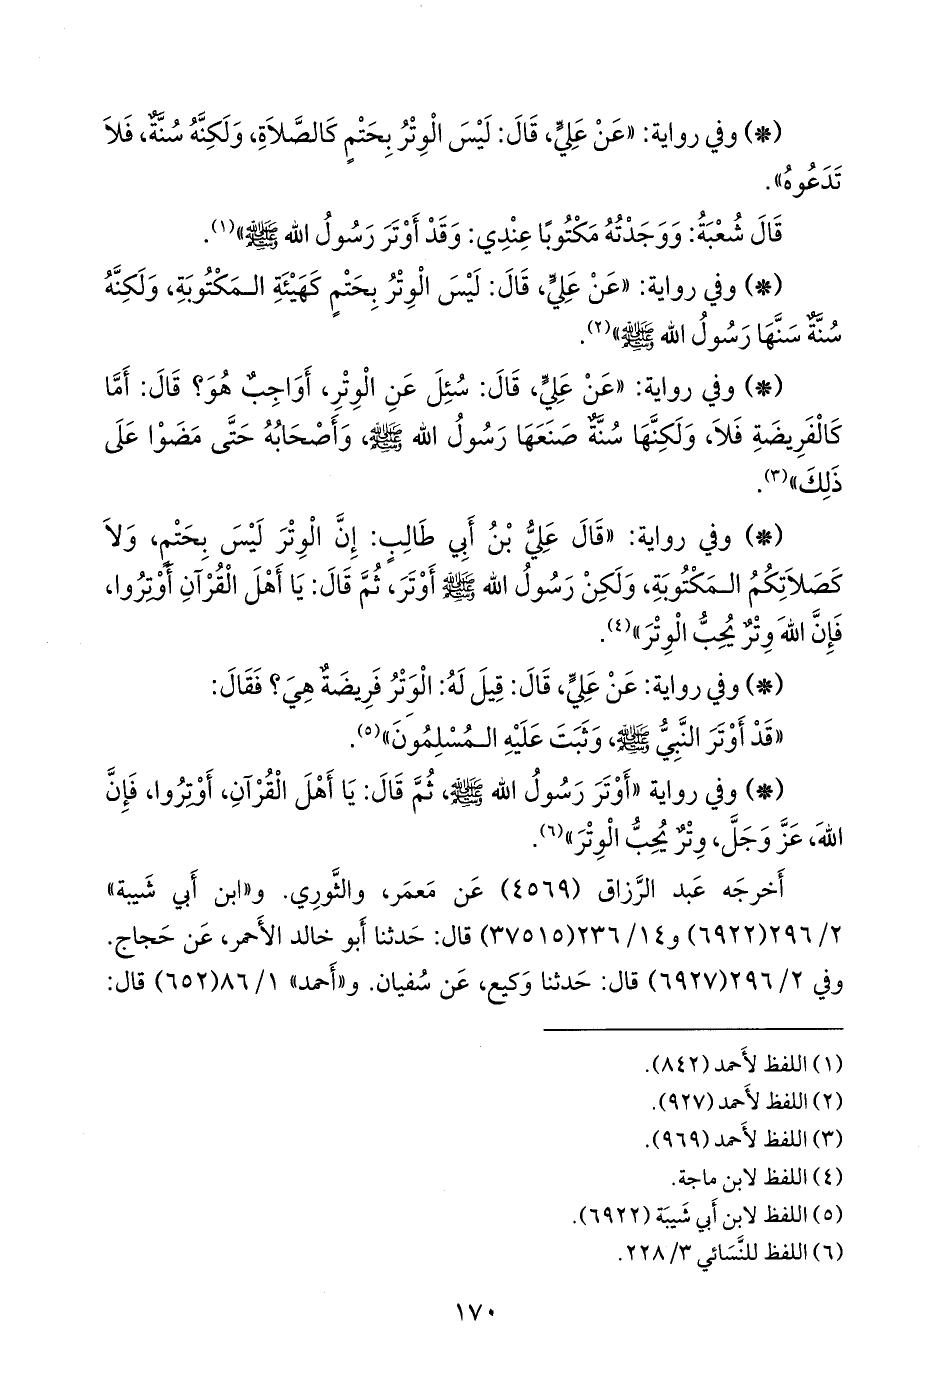 (*) وفي رواية: «عَنْ عَلِيٍّ، قَالَ: لَيْسَ الْوِتْرُ بِحَتْمٍ كَالصَّلاَةِ، وَلَكِنَّهُ سُنَّةٌ، فَلاَ
تَدَعُوهُ».
قَالَ شُعْبَةُ: وَوَجَدْتُهُ مَكْتُوبًا عِنْدِي: وَقَدْ أَوْتَرَ رَسُولُ الله ﷺ»(١).
(*) وفي رواية: «عَنْ عَلِيٍّ، قَالَ: لَيْسَ الْوِتْرُ بِحَتْمٍ كَهَيْئَةِ الـمَكْتُوبَةِ، وَلَكِنَّهُ
سُنَّةٌ سَنَّهَا رَسُولُ الله ﷺ»(٢).
(*) وفي رواية: «عَنْ عَلِيٍّ، قَالَ: سُئِلَ عَنِ الْوِتْرِ، أَوَاجِبٌ هُوَ؟ قَالَ: أَمَّا
كَالْفَرِيضَةِ فَلاَ، وَلَكِنَّهَا سُنَّةٌ صَنَعَهَا رَسُولُ الله ﷺ، وَأَصْحَابُهُ حَتَّى مَضَوْا عَلَى
ذَلِكَ»(٣).
(*) وفي رواية: «قَالَ عَلِيُّ بْنُ أَبِي طَالِبٍ: إِنَّ الْوِتْرَ لَيْسَ بِحَتْمٍ، وَلاَ
كَصَلاَتِكُمُ الـمَكْتُوبَةِ، وَلَكِنْ رَسُولُ الله ﷺ أَوْتَرَ، ثُمَّ قَالَ: يَا أَهْلَ الْقُرْآنِ أَوْتِرُوا،
فَإِنَّ اللهَ وِتْرٌ يُحِبُّ الْوِتْرَ»(٤).
(*) وفي رواية: عَنْ عَلِيٍّ، قَالَ: قِيلَ لَهُ: الْوَتْرُ فَرِيضَةٌ هِيَ؟ فَقَالَ:
«قَدْ أَوْتَرَ النَّبِيُّ ﷺ، وَثَبَتَ عَلَيْهِ الـمُسْلِمُونَ»(٥).
(*) وفي رواية «أَوْتَرَ رَسُولُ الله ﷺ، ثُمَّ قَالَ: يَا أَهْلَ الْقُرْآنِ، أَوْتِرُوا، فَإِنَّ
اللهَ، عَزَّ وَجَلَّ، وِتْرٌ يُحِبُّ الْوِتْرَ»(٦).
أَخرجَه عَبد الرَّزاق (٤٥٦٩) عَن مَعمَر، والثَّوري. و«ابن أَبي شَيبة»
٢/ ٢٩٦(٦٩٢٢) و١٤/ ٢٣٦(٣٧٥١٥) قال: حَدثنا أَبو خالد الأَحمر، عَن حَجاج.
وفي ٢/ ٢٩٦(٦٩٢٧) قال: حَدثنا وَكيع، عَن سُفيان. و«أَحمد» ١/ ٨٦(٦٥٢) قال:
(١) اللفظ لأَحمد (٨٤٢).
(٢) اللفظ لأَحمد (٩٢٧).
(٣) اللفظ لأَحمد (٩٦٩).
(٤) اللفظ لابن ماجة.
(٥) اللفظ لابن أَبي شَيبَة (٦٩٢٢).
(٦) اللفظ للنَّسَائي ٣/ ٢٢٨.
١٧٠